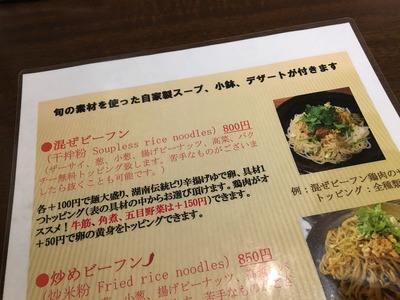 旬の素材を使った自家製スープ、小鉢、デザートが付きます
●混ぜビーフン
(干拌粉 Soupless rice noodles) 800円
(ザーサイ、葱、小葱、揚げピーナッツ、高菜、パク
チー無料トッピング致します。苦手なものがございま
したら抜くことも可能です。)
各＋100円で麺大盛り、湖南伝統ピリ辛揚げゆで卵、具材1
つトッピング(表の具材の中からお選び頂けます。鶏肉がオ
ススメ！牛筋、角煮、五目野菜は＋150円)できます。
＋50円で卵の黄身をトッピングできます。
例：混ぜビーフン鶏肉の
トッピング：全種類
●炒めビーフン
(炒米粉 Fried rice noodles) 850円
葱、小葱、揚げピーナッツ、高菜、